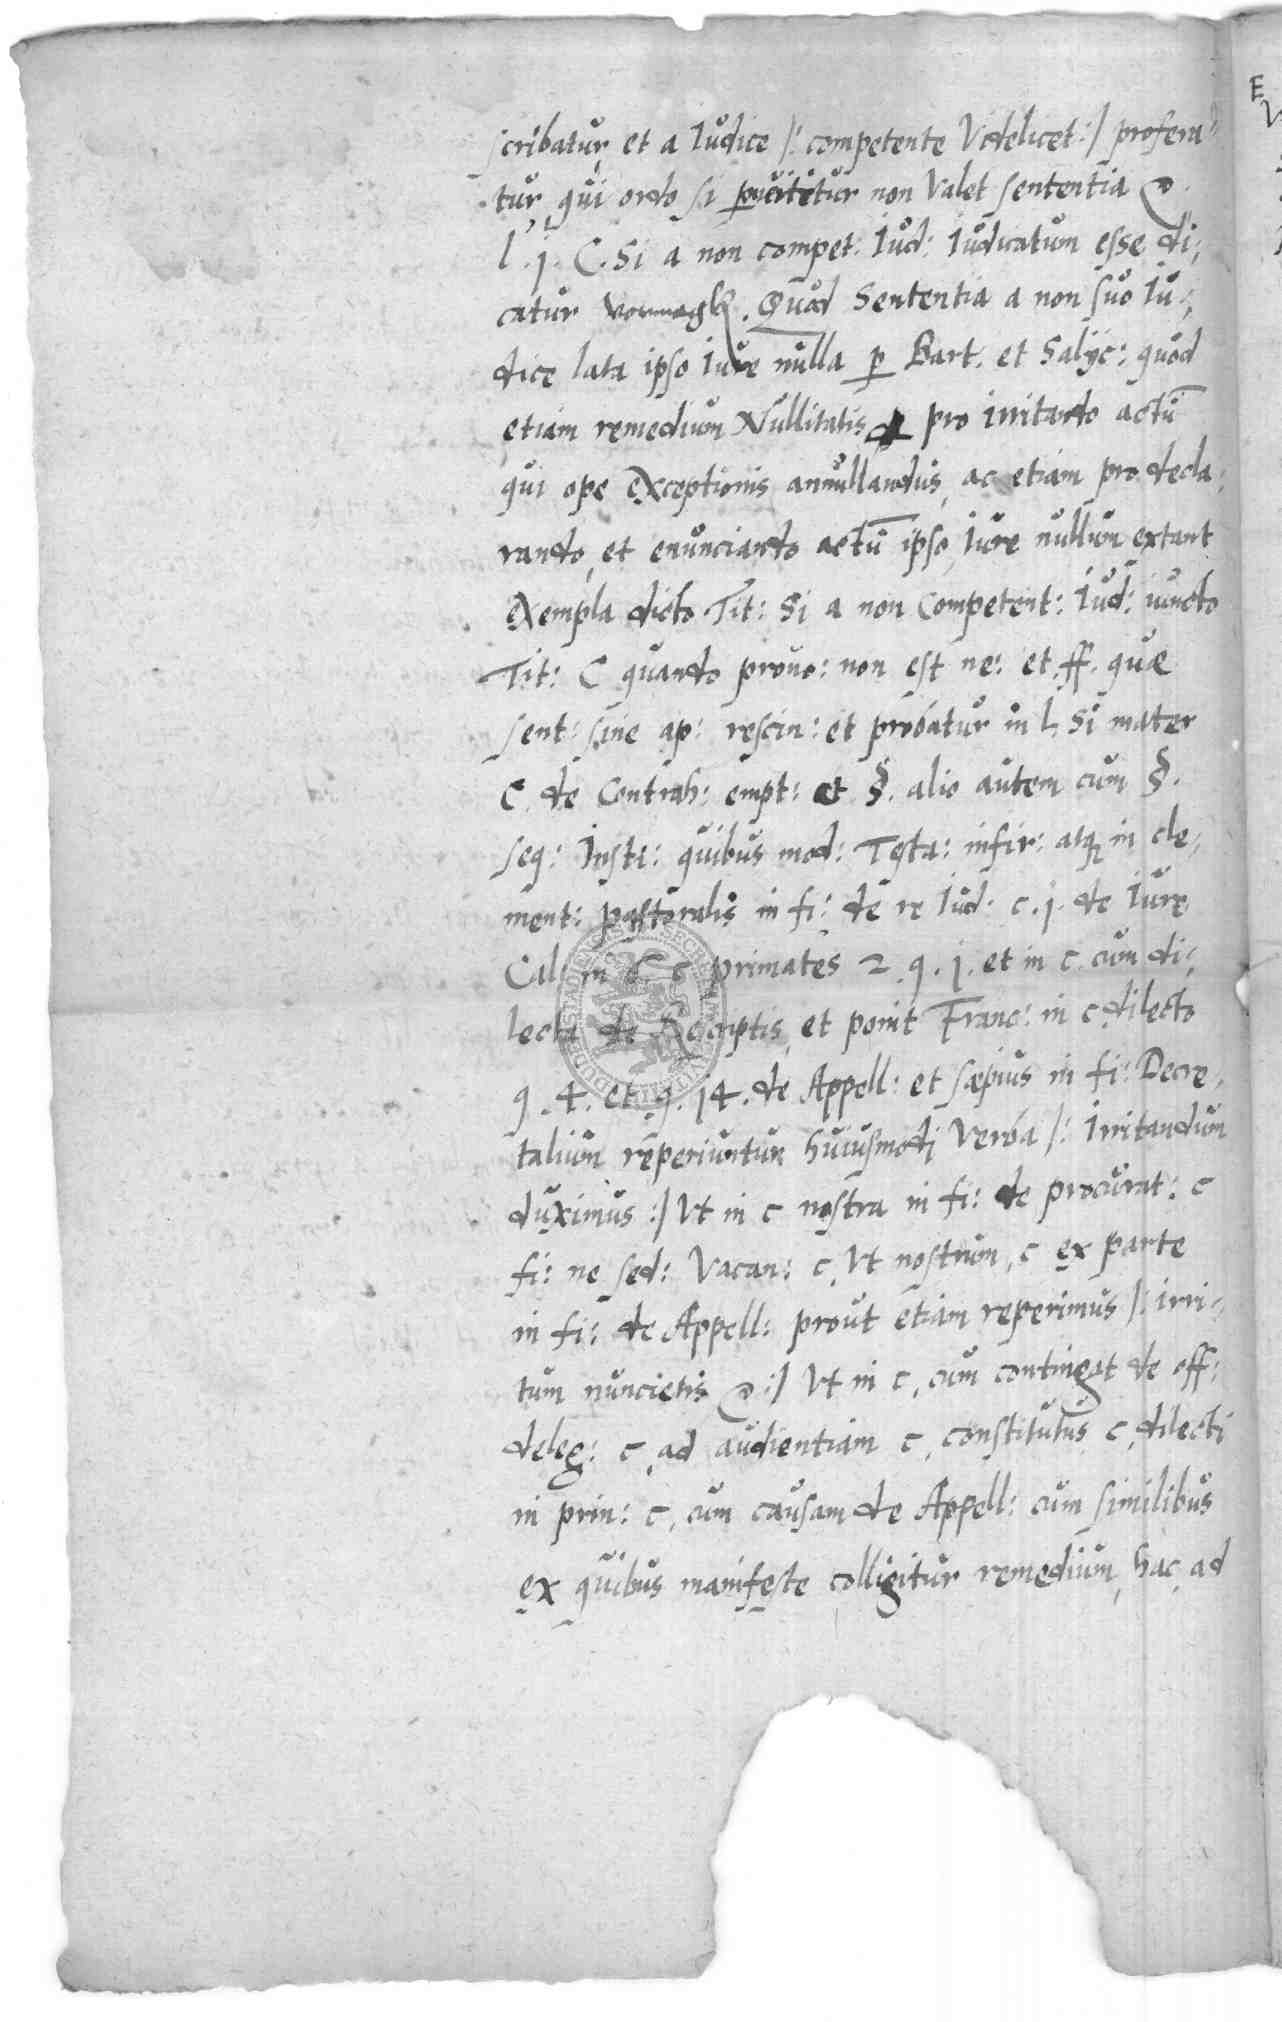 scribatur et a Iudice /: competente Videlicet :/ profera-
tur, qui ordo si non Valet sententia
l. j. C. Si a non compet: Iud: Iudicatum esse di-
catur. Quod Sententia a non suo Iu-
dice lata ipso Iure nulla p Bart. et Salyc: quod
etiam remedium Nullitatis pro irritando actū
qui ope exceptionis annullandus, ac etiam pro decla-
rando, et enunciando actū ipso Iure nullum extant
exempla dicto Tit: Si a non Competent: Iud: iuncto
Tit: C quando provo: non est ne: et ff. quæ
sent: sine ap: rescin: et probatur in l. Si mater
C. de Contrah: empt: et §. alio autem cum §.
seq: Insti: quibus mod: Testa: infir: atq in cle-
ment: pastoralis in fi: de re Iud. c. j. de Iure
Cal: in c primates 2. q. j. et in c. cum di-
lecta de Rescriptis, et ponit Franc: in c dilecto
q. 4. et q. 14. de Appell: et sæpius in fi: Decre-
talium reperiuntur huiusmodi Verba /: Irritandum
duximus :/ Vt in c nostra in fi: de procurat: c
fi: ne sed: Vacan: c, Vt nostrum, c ex parte
in fi: de Appell: prout etiam reperimus /: irri-
tum nuncietis :/ Vt in c, cum contingat de off:
deleg: c, ad audientiam c, constitutus c, dilecti
in prin: c, cum causam de Appell: cum similibus
ex quibus manifeste colligitur remedium, hac, ad